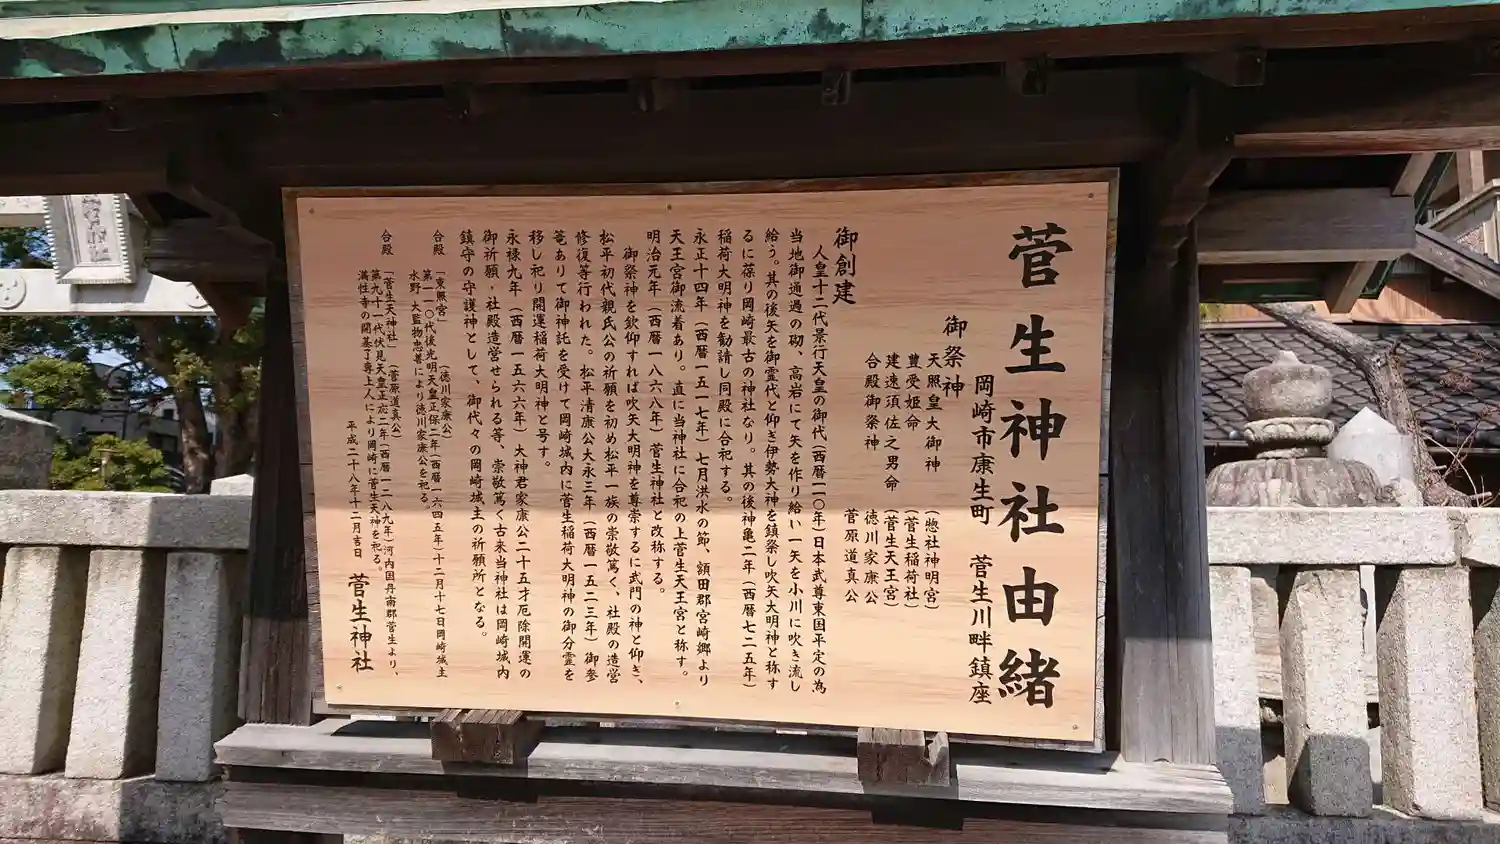 菅生神社由緒
岡崎市康生町　菅生川畔鎮座
御祭神
天照皇大御神　(惣社神明宮)
豊受姫命　(菅生稲荷社)
建速須佐之男命　(菅生天王宮)
合殿御祭神　徳川家康公
菅原道真公
御創建
人皇十二代景行天皇の御代(西暦一一〇年)日本武尊東国平定の為
当地御通過の砌、高岩にて矢を作り給い一矢を小川に吹き流し
給う。其の後矢を御霊代と仰ぎ伊勢大神を鎮祭し吹矢大明神と称す
るに葆り岡崎最古の神社なり。其の後神亀二年(西暦七二五年)
稲荷大明神を勧請し同殿に合祀する。
永正十四年(西暦一五一七年)七月洪水の節、額田郡宮崎郷より
天王宮御流着あり。直に当神社に合祀の上菅生天王宮と称す。
明治元年(西暦一八六八年)菅生神社と改称する。
御祭神を欽仰すれば吹矢大明神を尊崇するに武門の神と仰ぎ、
松平初代親氏公の祈願を初め松平一族の崇敬篤く、社殿の造営
修復等行われた。松平清康公大永三年(西暦一五二三年)御参
篭ありて御神託を受けて岡崎城内に菅生稲荷大明神の御分霊を
移し祀り開運稲荷大明神と号す。
永禄九年(西暦一五六六年)大神君家康公二十五才厄除開運の
御祈願，社殿造営せられる等、崇敬篤く古来当神社は岡崎城内
鎮守の守護神として、御代々の岡崎城主の祈願所となる。
合殿　「東照宮」(徳川家康公)
第一一〇代後光明天皇正保二年(西暦一六四五年)十二月十七日岡崎城主
水野　大監物忠善により徳川家康公を祀る。
合殿　「菅生天神社」(菅原道真公)
第九十一代伏見天皇正応二年(西暦一二八九年)河内国丹南郡菅生より、
満性寺の開基了専上人により岡崎に菅生天神を祀る。
平成二十八年十二月吉日　菅生神社